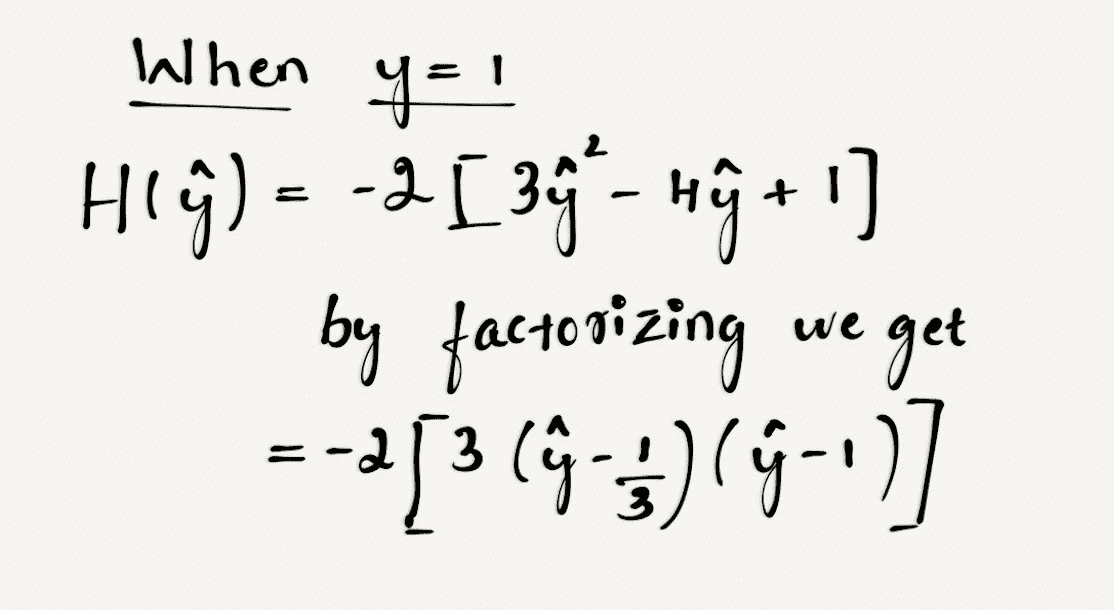 When y = 1
H(ŷ) = -2[3ŷ² - 4ŷ + 1]
by factorizing we get
= -2[3(ŷ - 1/3)(ŷ - 1)]